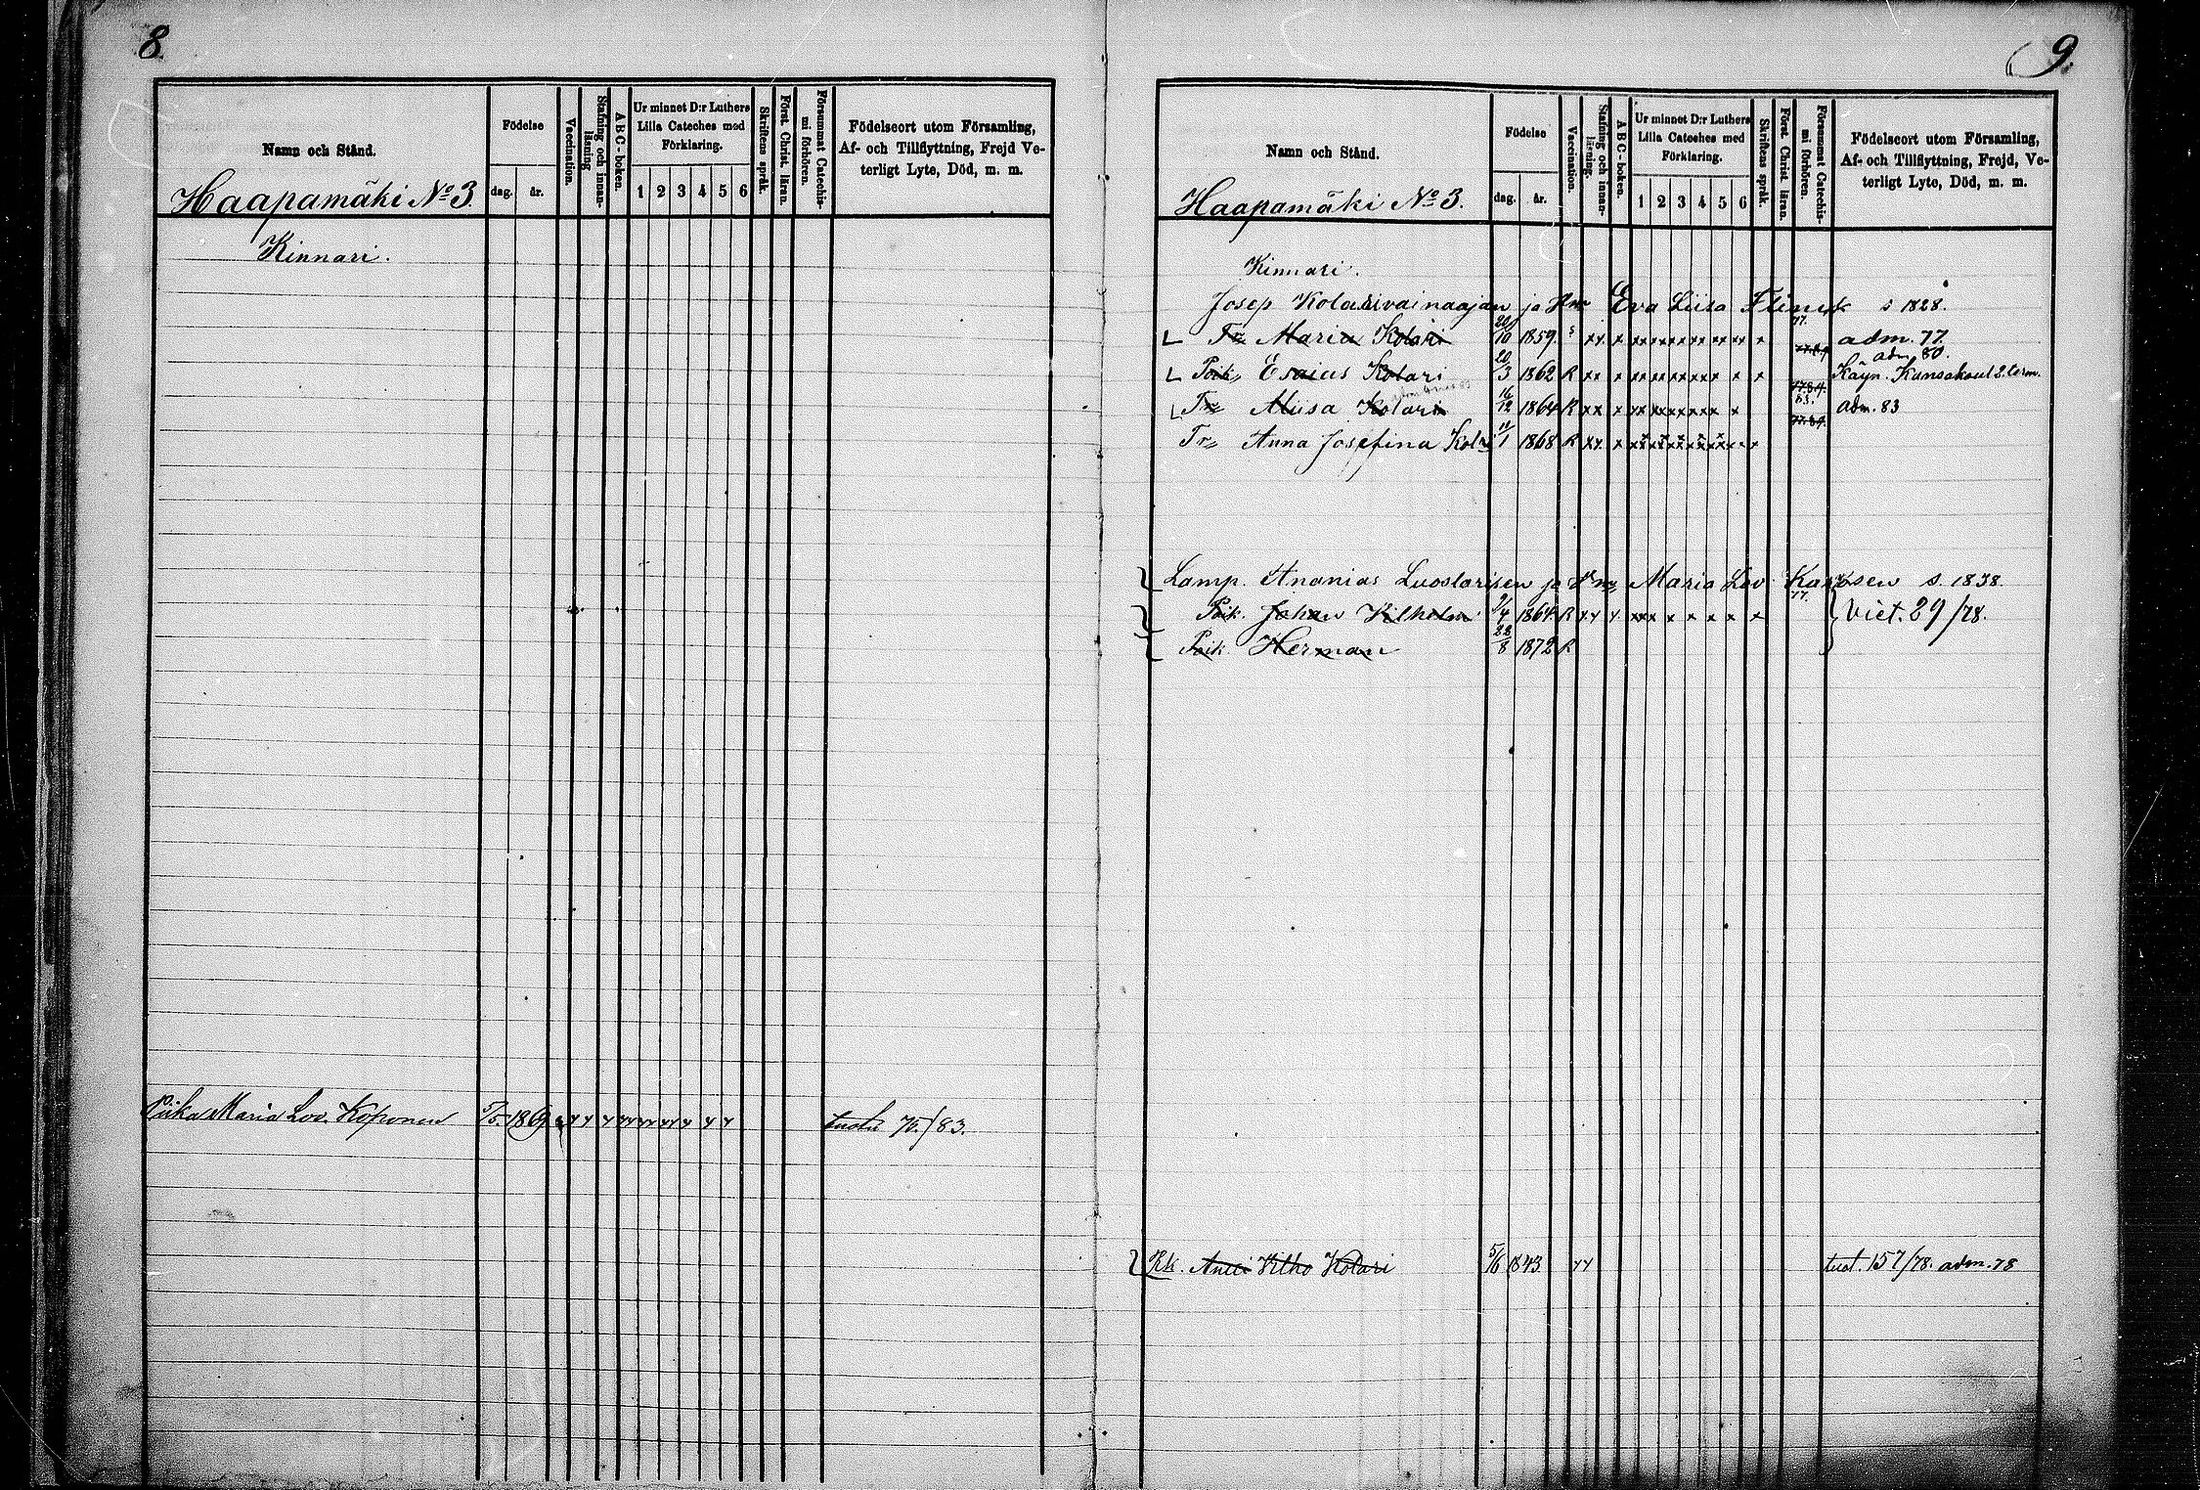 8.
Namn och Stånd.
Födelse
dag. år.
Vaccination.
Stafning och innan-läsning
ABC-boken.
Ur minnet D:r Luthers Lilla Cateches med Förklaring.
1 2 3 4 5 6
Skriftens språk.
Först. Christ. läran.
Försummat Catechis-mi förhören.
Födelseort utom Församling,
Af- och Tillflyttning, Frejd Ve-
terligt Lyte, Död, m. m.
Haapamäki No 3.
Kinnari.
Piika Maria Lov. Koponen 5/5. 1869 tustu 70./83.
9.
Namn och Stånd.
Födelse
dag. år.
Vaccination.
Stafning och innan-läsning.
ABC-boken.
Ur minnet D:r Luthers Lilla Cateches med Förklaring.
1 2 3 4 5 6
Skriftens språk.
Först. Christ. läran.
Försummat Catechis-mi förhören.
Födelseort utom Församling,
Af- och Tillflyttning, Frejd, Ve-
terligt Lyte, Död, m. m.
Haapamäki No 3.
Kinnari.
Josep Kolarivainaajan ja Vm Eva Liisa s 1828.
Tr Maria Kolari 20/10 1859. s xx x xx xx xx xx xx xx x 77. adm. 77.
Poik Esaias Kolari 20/3 1862 R xx x x x adm. 80. Käyn. Kansakoul 2 lerm.
Tr Miisa Kolari 16/12 1864 R xx x x 83. adm. 83
Tr Anna Josefina Kolari 11/1 1868 R xx x
Lamp. Ananias Luostarisen ja Vm Maria Lov. s. 1838.
Poik. Johan Vilhelm 9/4 1864 R xx x xxx x x x x x x 77. Viet. 29/78.
Poik. Herman 22/8 1872 R
Rk. Antti Vilho Kolari 5/6 1843 xx tust. 157/78. adm. 78